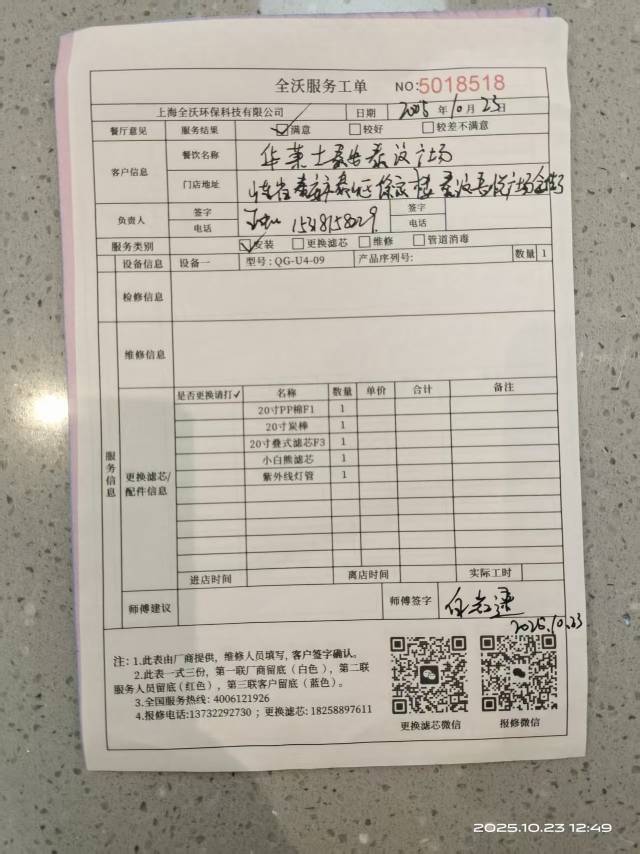 全沃服务工单 NO:5018518
上海全沃环保科技有限公司 日期 2025 年 10 月 23 日
餐厅意见 服务结果 ☑满意 □较好 □较差不满意
客户信息 餐饮名称 华莱士泰安泰汶广场
门店地址
负责人 签字 签字
电话 电话
服务类别 ☑安装 □更换滤芯 □维修 □管道消毒
设备信息 设备一 型号：QG-U4-09 产品序列号: 数量 1
检修信息
维修信息
服务信息
更换滤芯/配件信息
是否更换请打✓ 名称 数量 单价 合计 备注
20寸PP棉F1 1
20寸炭棒 1
20寸叠式滤芯F3 1
小白熊滤芯 1
紫外线灯管 1
进店时间 离店时间 实际工时
师傅建议 师傅签字
2025.10.23
注：1.此表由厂商提供，维修人员填写，客户签字确认。
2.此表一式三份，第一联厂商留底（白色），第二联
服务人员留底（红色），第三联客户留底（蓝色）。
3.全国服务热线: 4006121926
4.报修电话:13732292730；更换滤芯: 18258897611
更换滤芯微信 报修微信
2025.10.23 12:49